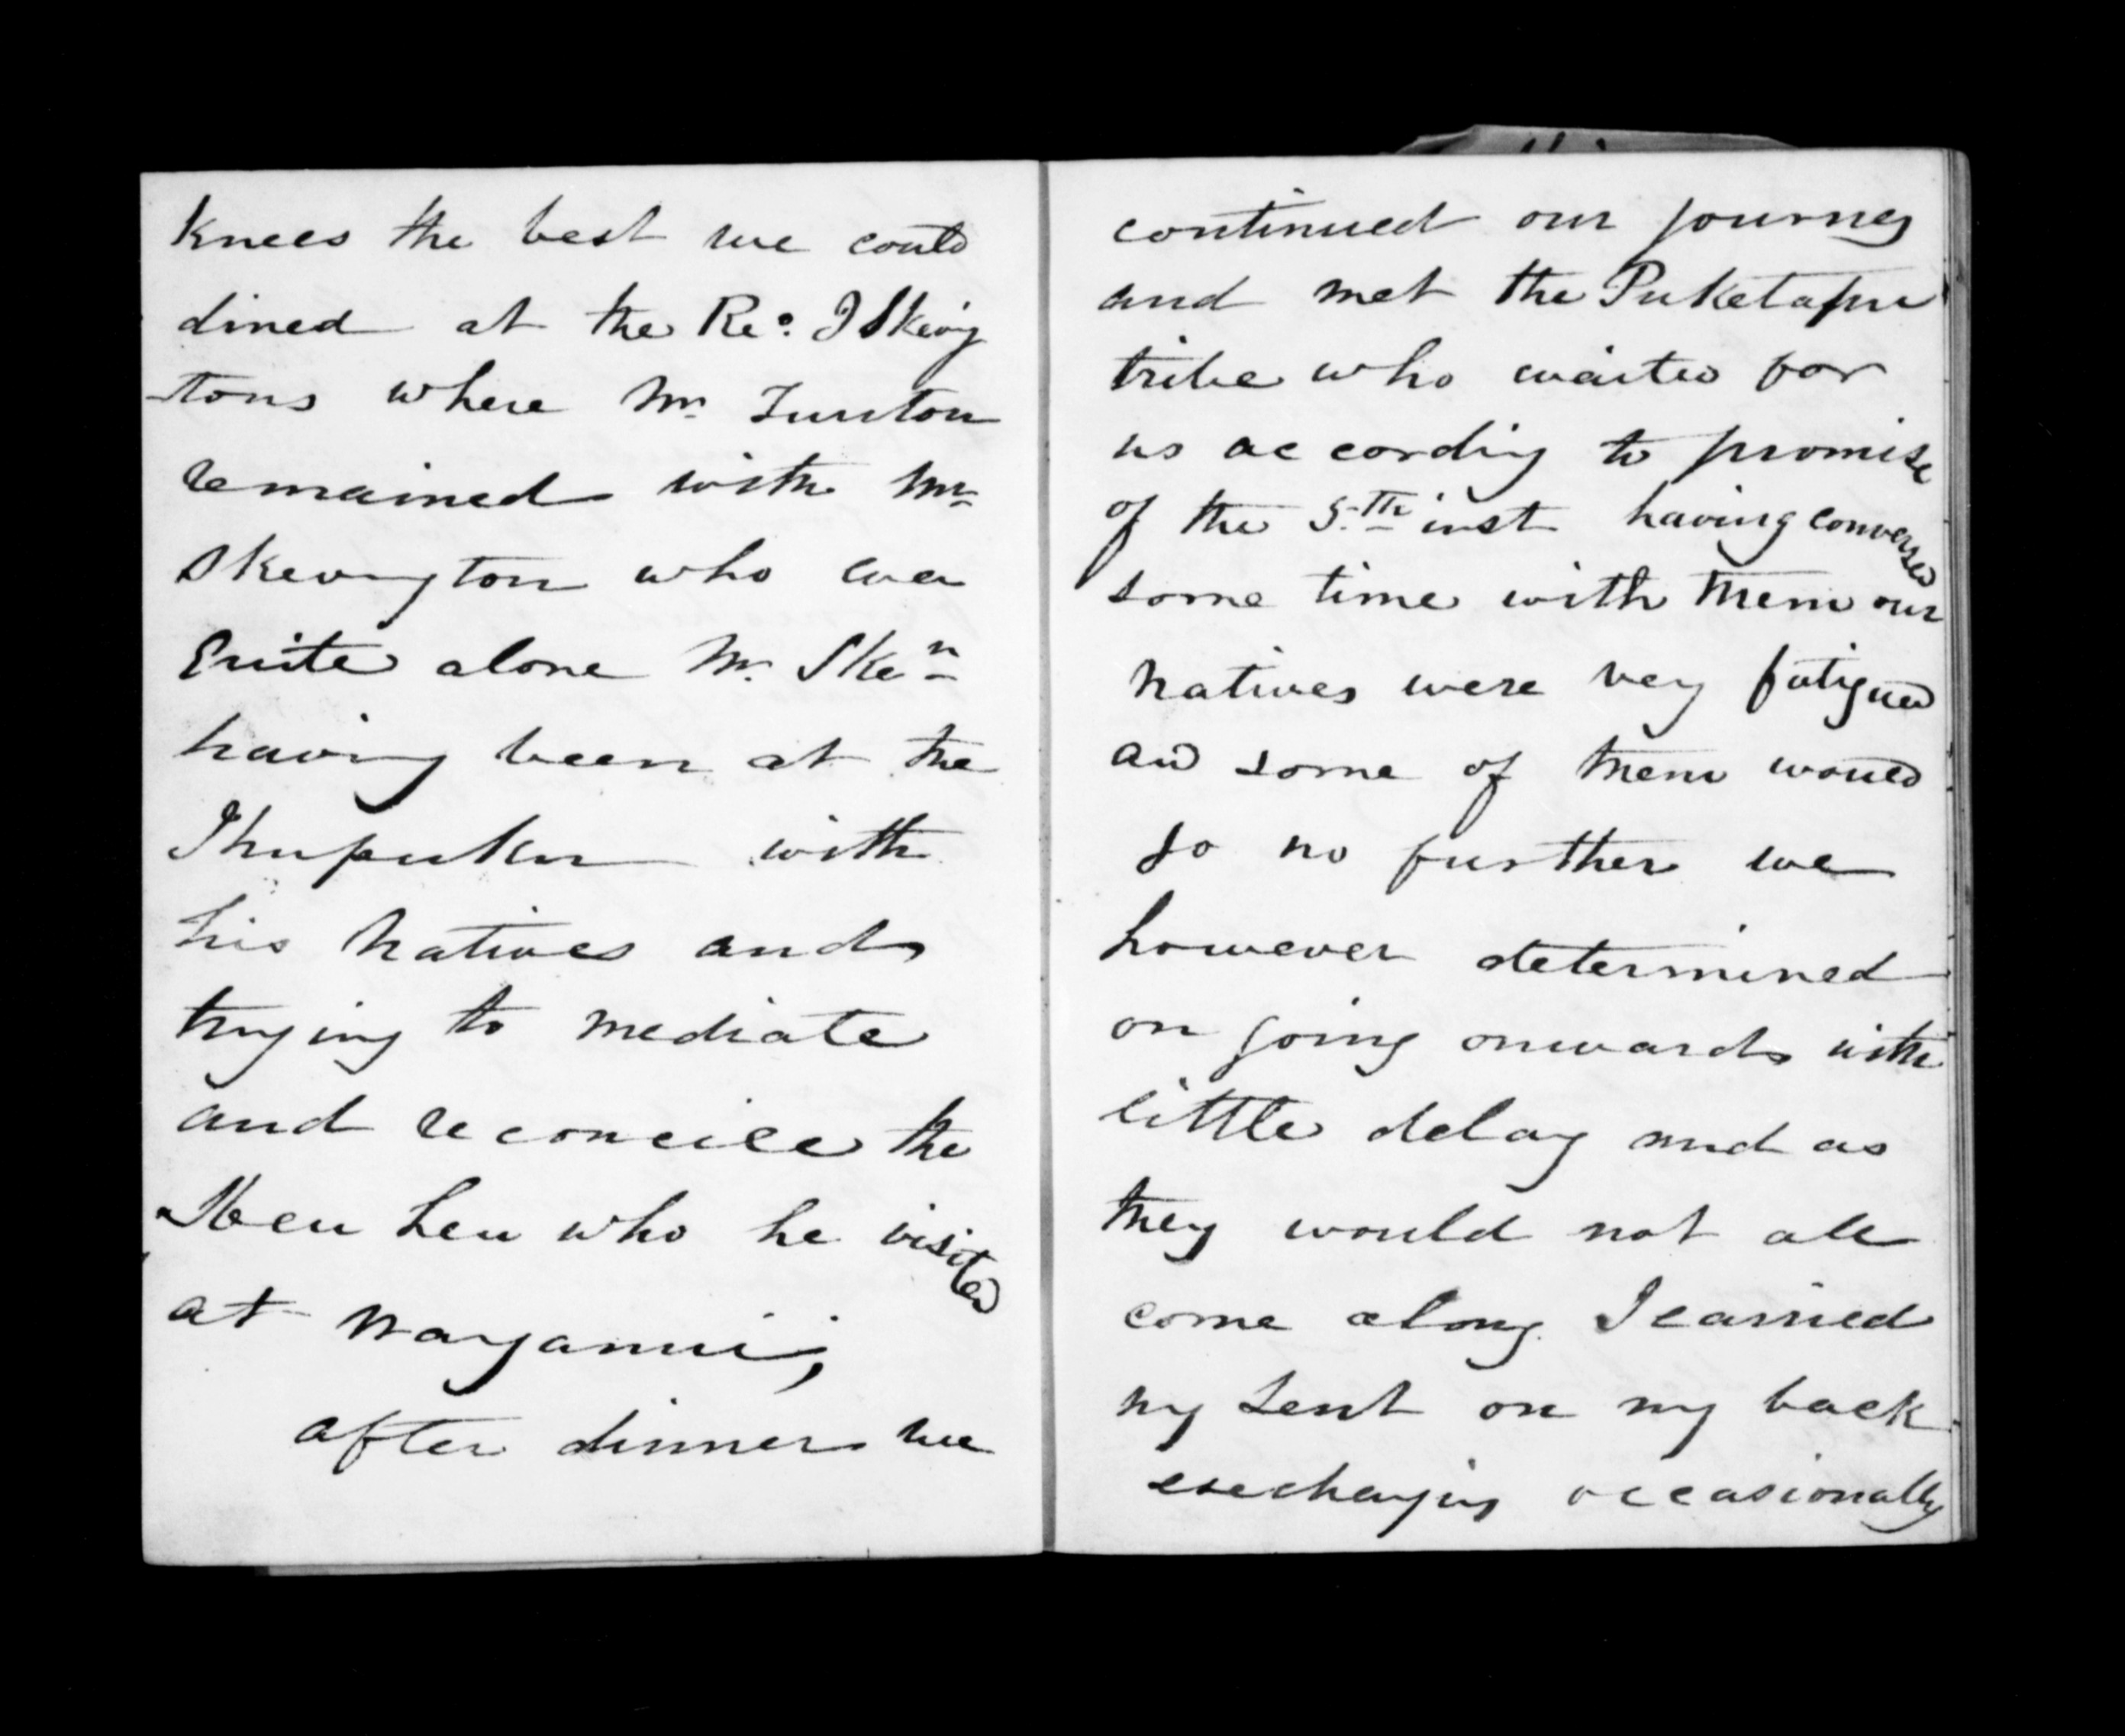 knees the best we could
dined at the Re.o J Skeving
-tons where Mr Turton
remained with Mrs
Skevington who was
quite alone Mr Sken
having been at the
Ihupuku with
his natives and
trying to mediate
and reconcile the
heu heu who he visited
at Wanganui;
after dinner we
continued our journey
and met the Puketapu
tribe who waited for
us according to promise
of the 5.th inst having conversed
some time with them our
natives were very fatigued
and some of them would
go no further we
however determined
on going onwards with
little delay and as
they would not all
come along I carried
my tent on my back
exchanging occasionally